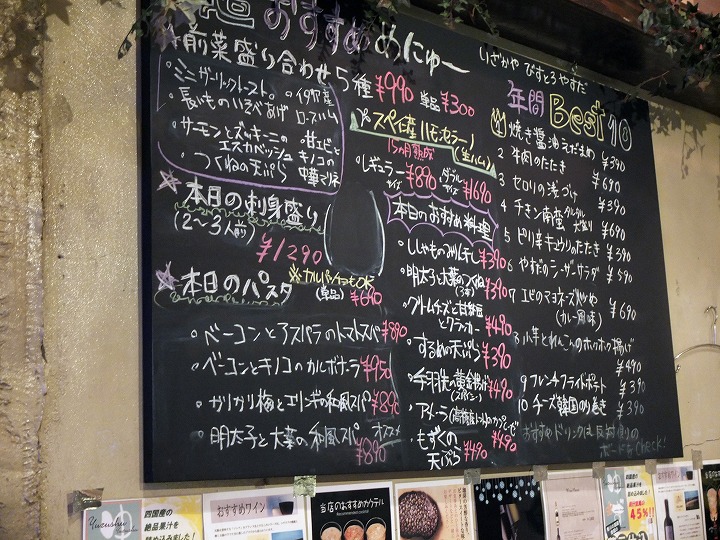 おすすめめにゅー
前菜盛り合わせ5種 ¥990 単品¥300
ミニガーリックトースト
長いものいそべあげ
サーモンとズッキーニの
エスカベッシュ
つくねの天ぷら
イタリア産
ロースハム
甘エビと
キノコの
中華マリネ
本日の刺身盛り
(2〜3人前)
¥1290
カルパッチョもOK
(単品) ¥690
本日のパスタ
ベーコンとアスパラのトマトスパ ¥890
ベーコンとキノコのカルボナーラ ¥950
カリカリ梅とエリンギの和風スパ ¥890
明太子と大葉の和風スパ オススメ
¥890
スペイン産ハモンセラーノ(生ハム)
15ヵ月熟成
レギュラーサイズ ¥890 ダブルサイズ ¥1690
本日のおすすめ料理
ししゃものみりん干し ¥390
明太子と大葉のつくね ¥390
クリームチーズと
とクラッカー ¥490
するめの天ぷら ¥390
手羽先の黄金揚げ ¥490
(スパイシー)
もずくの
天ぷら ¥490
¥490
いざかや びすとろ やすだ
年間 Best 10
1 焼き醤油えだまめ ¥390
2 牛肉のたたき ¥690
3 セロリの浅づけ ¥390
4 チキン南蛮 タルタル
大盛り ¥690
5 ピリ辛キュウリのたたき ¥390
6 やすだのシーザーサラダ ¥590
7 エビのマヨネーズ炒め
(カレー風味) ¥690
8 小芋とれんこんのホクホク揚げ
¥490
9 フレンチフライドポテト ¥390
10 チーズ韓国のり巻き ¥390
おすすめドリンクは反対側の
ボードをCheck!
Yuzushu
四国産の
絶品果汁を
詰め込みました!
おすすめワイン
当店のおすすめカクテル
Recommended cocktail
45%!!